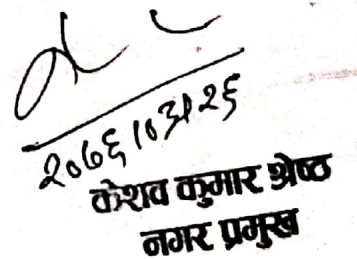 २०७६।०३।२६
केशव कुमार श्रेष्ठ
नगर प्रमुख